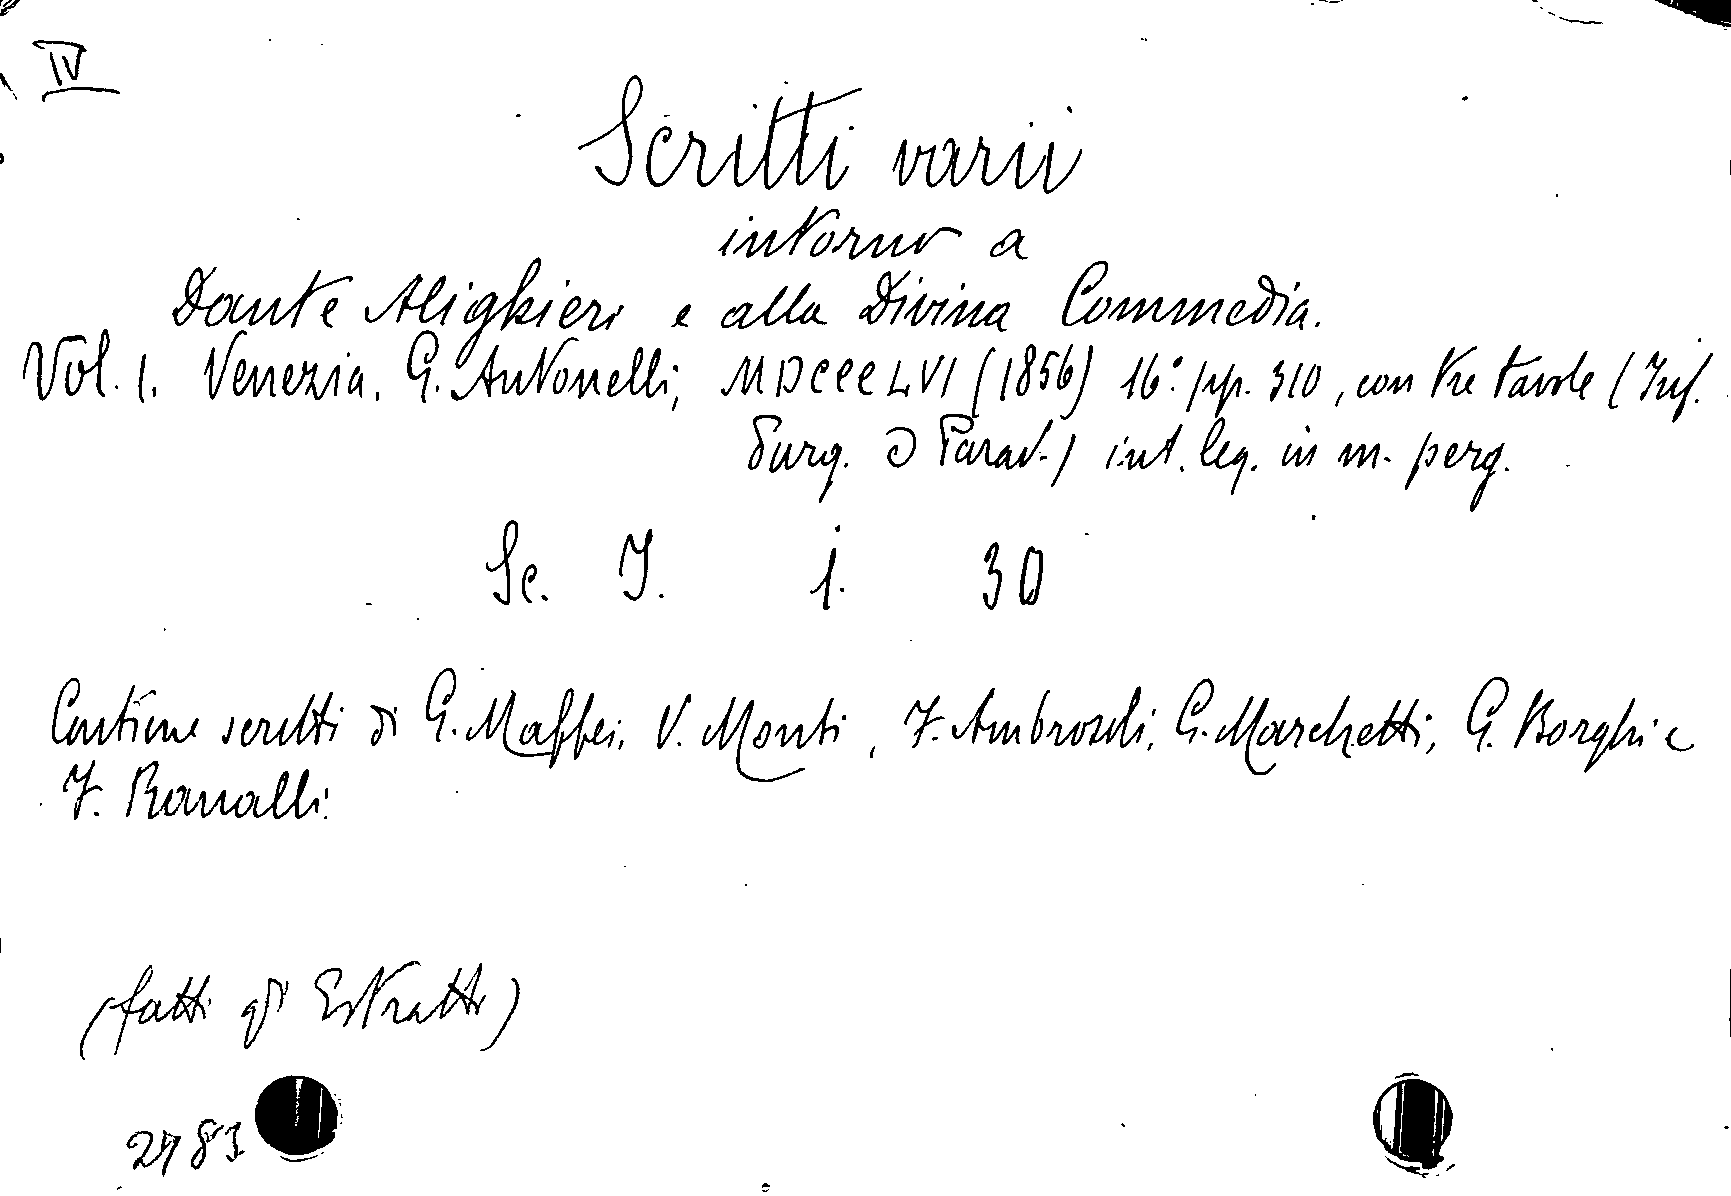 IV
Scritti varii
intorno a
Dante Alighieri e alla Divina Commedia.
Vol. 1. Venezia. G. Antonelli, MDCCCLVI (1856) 16° pp. 310, con tre tavole (Inf.
Purg. e Parad.) int. leg. in m. perg.
Sc. I. 1. 30
Contiene scritti di G. Maffei, V. Monti, F. Ambrosoli, G. Marchetti, G. Borghi e
F. Ranalli.
(fatti gl' Estratti)
2783